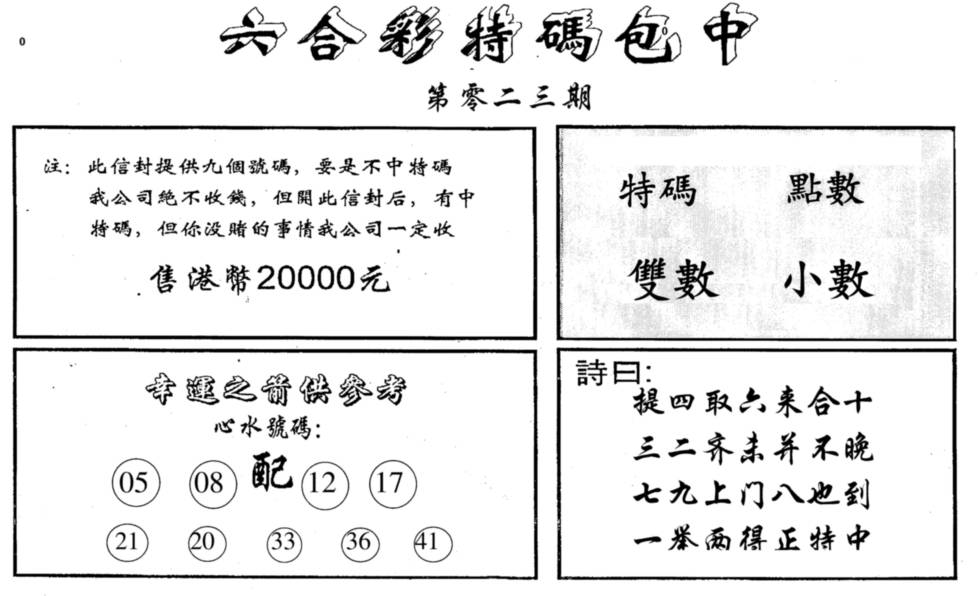 0
六合彩特碼包中
第零二三期
注：此信封提供九個號碼，要是不中特碼
我公司絶不收錢，但開此信封后，有中
特碼，但你没賭的事情我公司一定收
售港幣20000元
特碼 點數
雙數 小數
幸運之箭供參考
心水號碼：
05 08 配 12 17
21 20 33 36 41
詩曰：
提四取六来合十
三二齐来并不晚
七九上门八也到
一举两得正特中